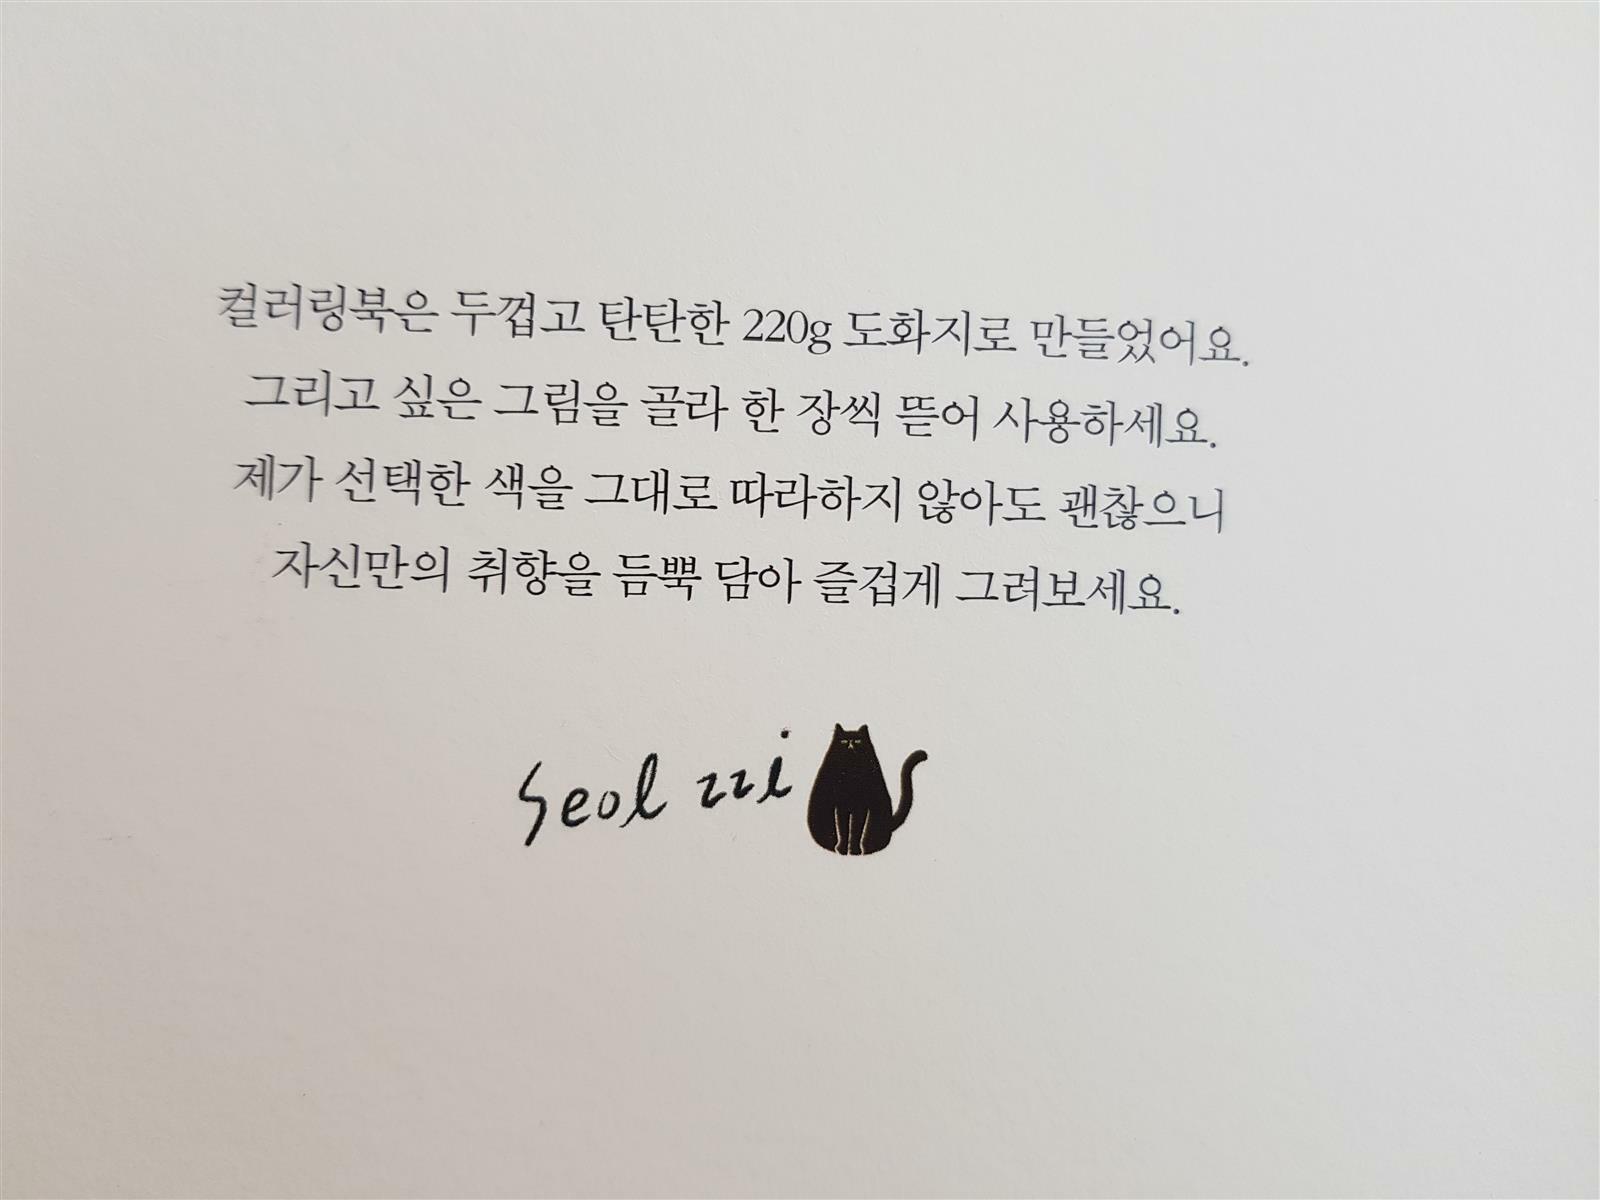 컬러링북은 두껍고 탄탄한 220g 도화지로 만들었어요.
그리고 싶은 그림을 골라 한 장씩 뜯어 사용하세요.
제가 선택한 색을 그대로 따라하지 않아도 괜찮으니
자신만의 취향을 듬뿍 담아 즐겁게 그려보세요.
seol zzi